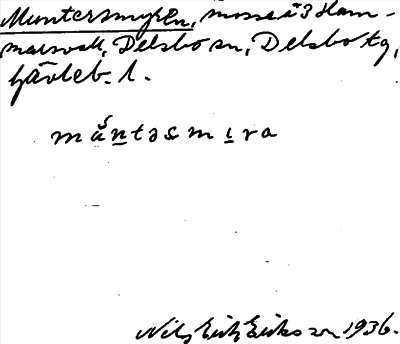 Muntersmyren, mosse å 3 Ham-
marsvall, Delsbo sn, Delsbo tg,
Gävleb. l.
måntəsmıra
Nils Erik Eriksson 1936.